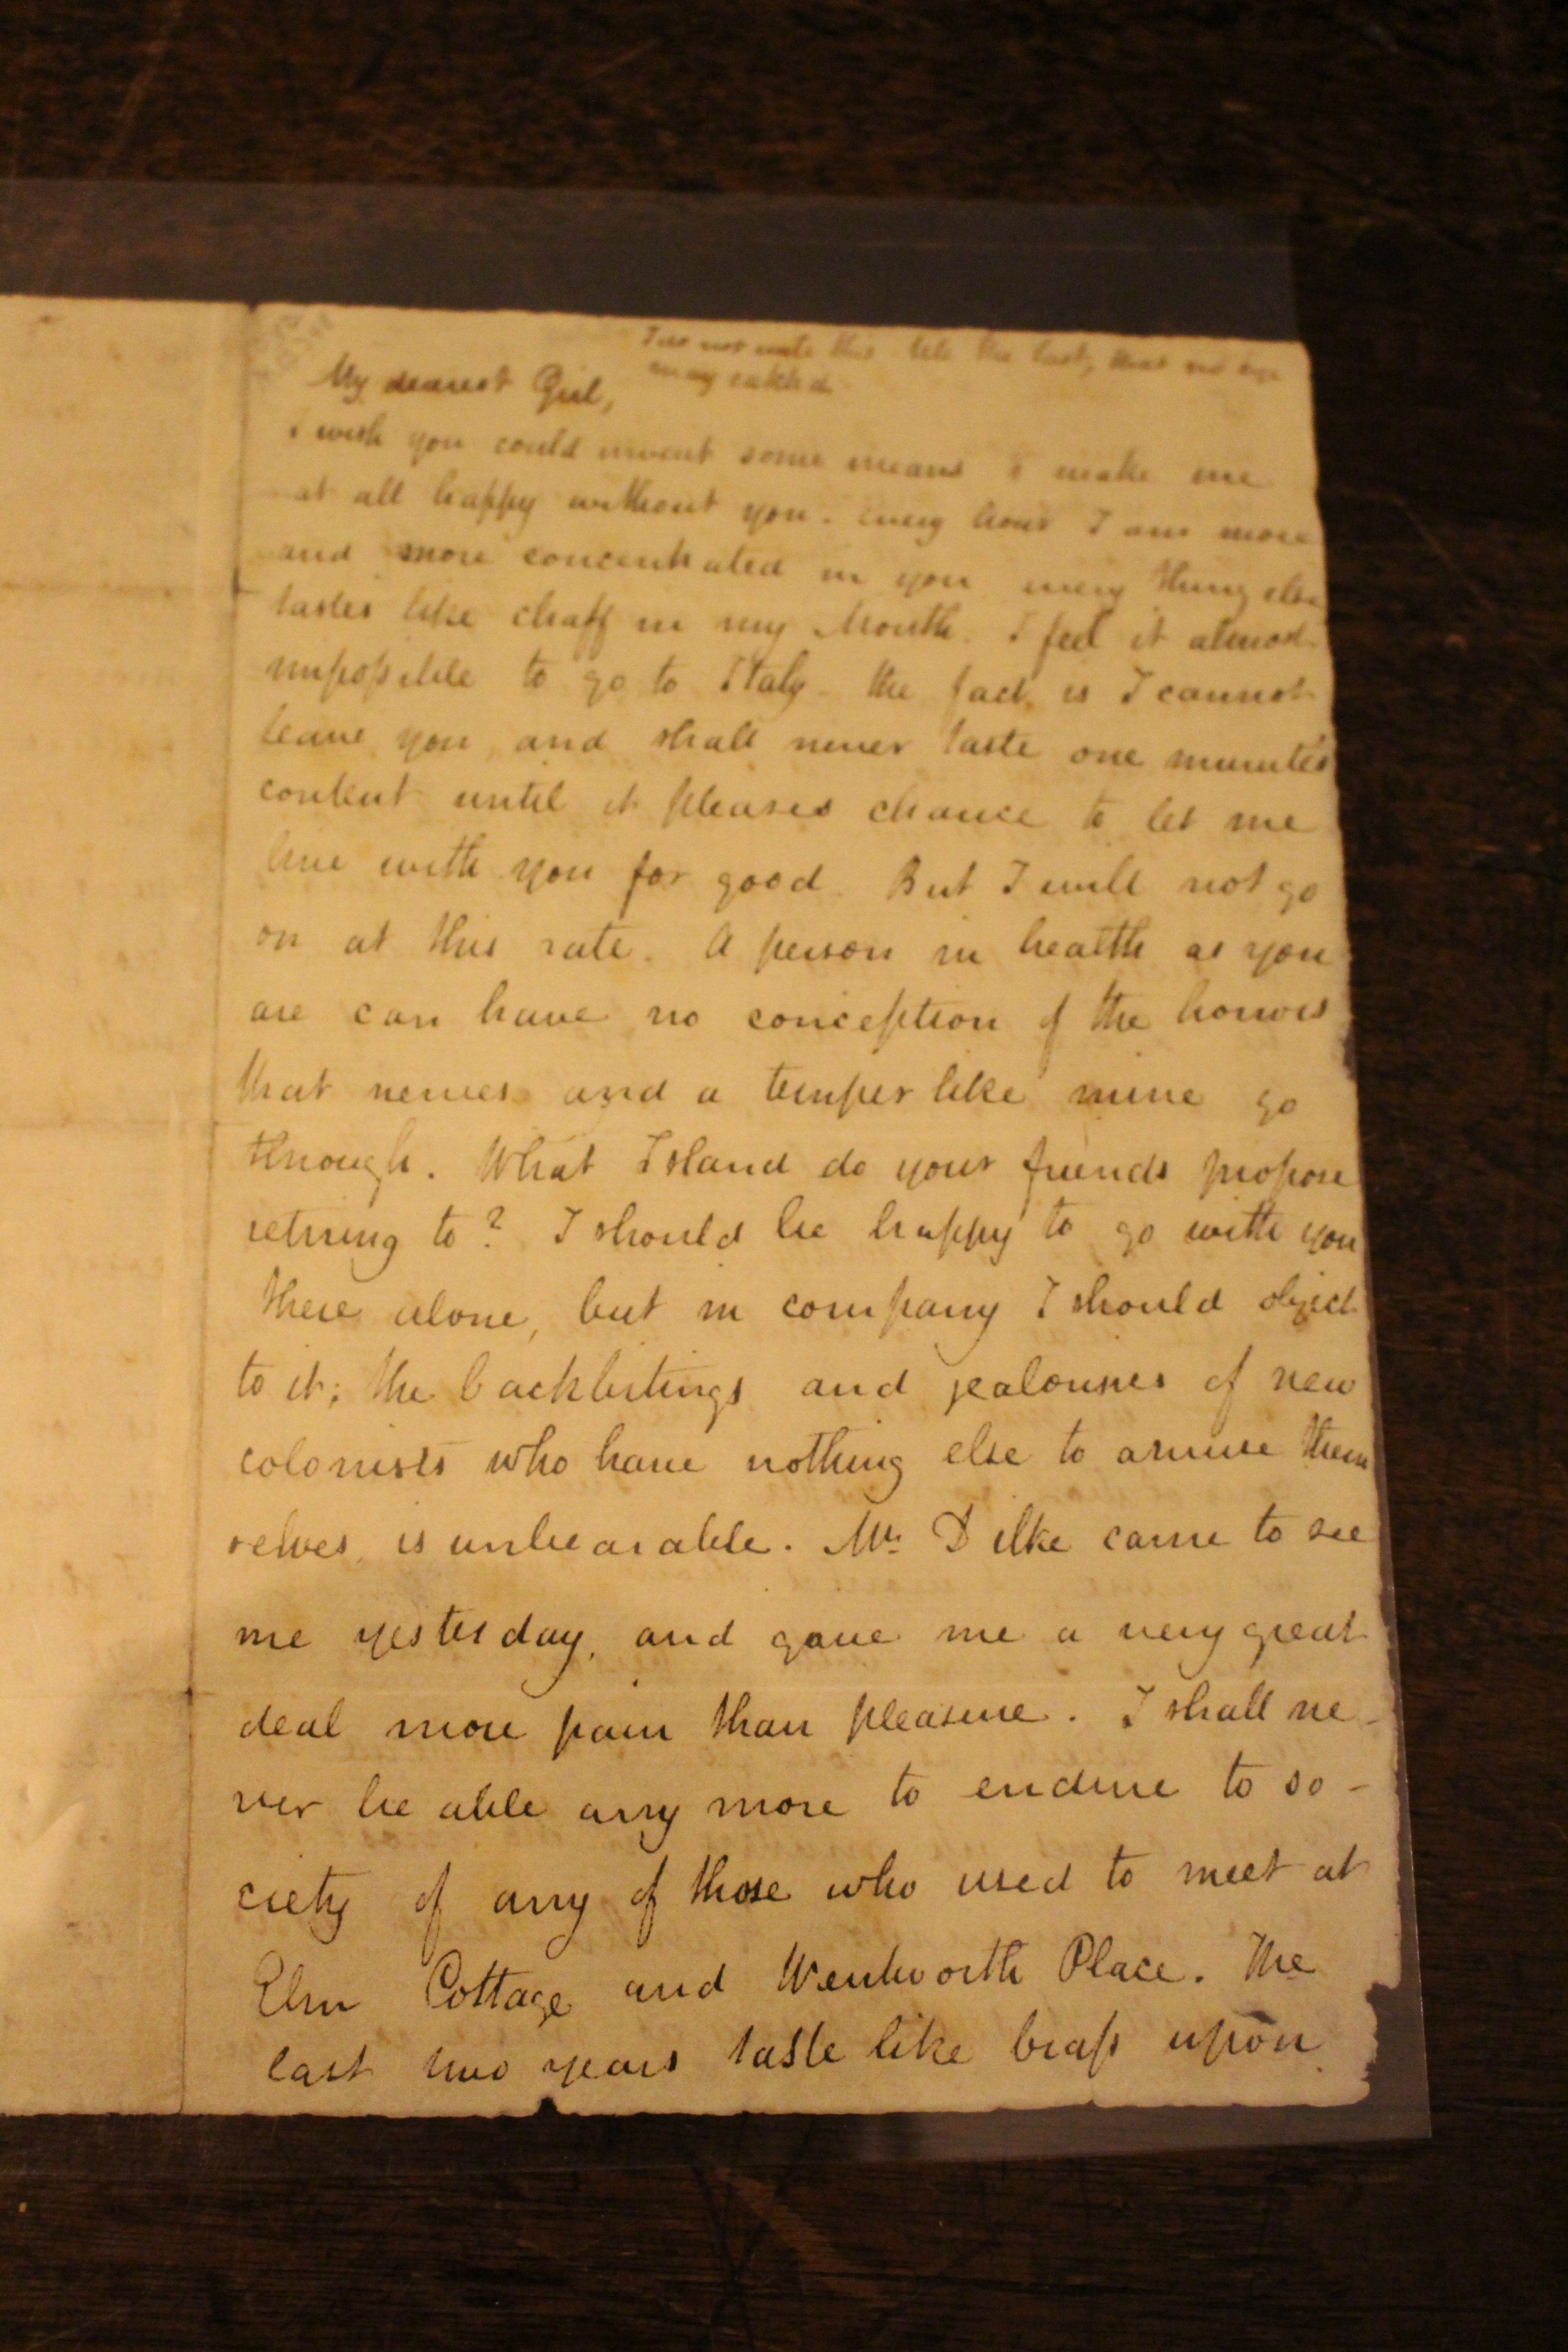 I do not write this till the last, that no eye
may catch it
My dearest Girl,
I wish you could invent some means to make me
at all happy without you. Every hour I am more
and more concentrated in you every thing else
tastes like chaff in my Mouth. I feel it almost
impossible to go to Italy - the fact is I cannot
leave you, and shall never taste one minute's
content until it pleases chance to let me
live with you for good. But I will not go
on at this rate. A person in health as you
are can have no conception of the horrors
that nerves and a temper like mine go
through. What Island do your friends propose
retiring to? I should be happy to go with you
there alone, but in company I should object
to it; the backbitings and jealousies of new
colonists who have nothing else to amuse them
selves, is unbearable. Mr Dilke came to see
me yesterday, and gave me a very great
deal more pain than pleasure. I shall ne-
ver be able any more to endure to so-
ciety of any of those who used to meet at
Elm Cottage and Wentworth Place. The
last two years taste like brass upon